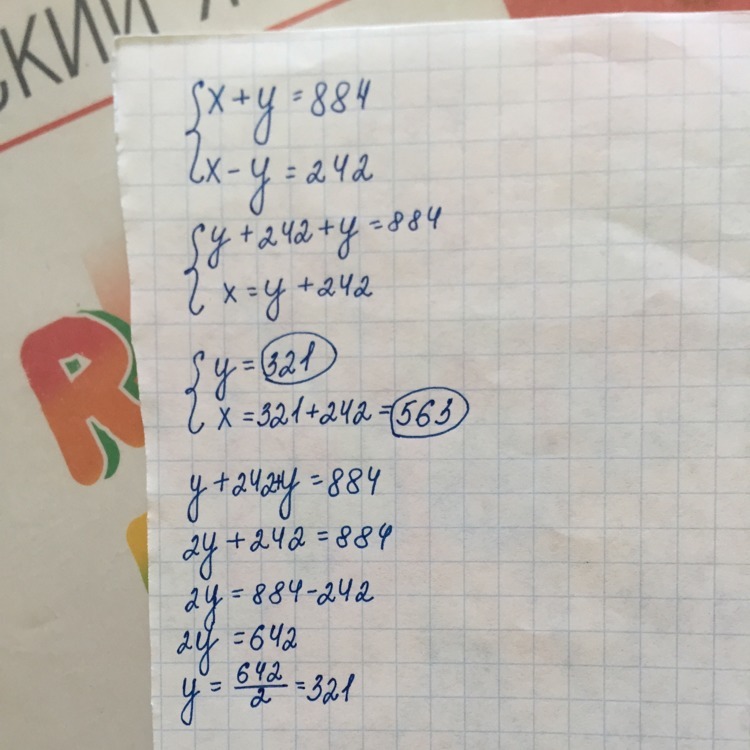 СКИЙ
x + y = 884
x - y = 242
y + 242 + y = 884
x = y + 242
y = 321
x = 321 + 242 = 563
y + 242 + y = 884
2y + 242 = 884
2y = 884 - 242
2y = 642
y = 642/2 = 321
R